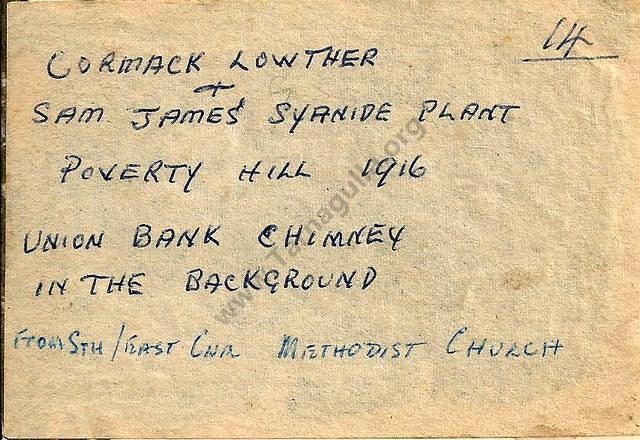 14
CORMACK LOWTHER
+
SAM JAMES' SYANIDE PLANT
POVERTY HILL 1916
UNION BANK CHIMNEY
IN THE BACKGROUND
FROM STH/EAST CNR METHODIST CHURCH
www.Tarnagulla.org